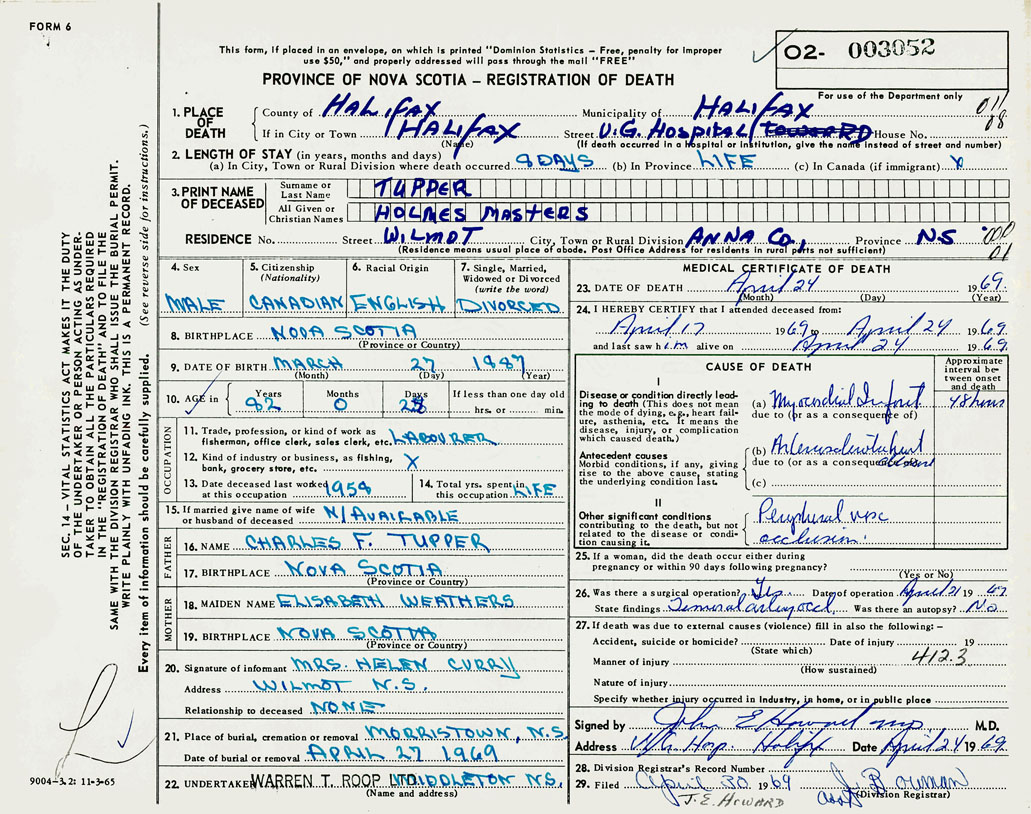 FORM 6
This form, if placed in an envelope, on which is printed "Dominion Statistics – Free, penalty for improper
use $50," and properly addressed will pass through the mail "FREE"
PROVINCE OF NOVA SCOTIA – REGISTRATION OF DEATH
02- 003052
For use of the Department only
011
08
1. PLACE OF DEATH
County of HALIFAX Municipality of HALIFAX
If in City or Town HALIFAX Street V.G. HOSPITAL House No.
(Name) (If death occurred in a hospital or institution, give the name instead of street and number)
2. LENGTH OF STAY (in years, months and days)
(a) In City, Town or Rural Division where death occurred 8 DAYS (b) In Province LIFE (c) In Canada (if immigrant) X
3. PRINT NAME OF DECEASED
Surname or Last Name TUPPER
All Given or Christian Names HOLMES MASTERS
RESIDENCE No. Street WILMOT City, Town or Rural Division ANNA CO, Province NS 000
01
(Residence means usual place of abode. Post Office Address for residents in rural parts not sufficient)
4. Sex MALE
5. Citizenship (Nationality) CANADIAN
6. Racial Origin ENGLISH
7. Single, Married, Widowed or Divorced (write the word) DIVORCED
8. BIRTHPLACE NOVA SCOTIA
(Province or Country)
9. DATE OF BIRTH MARCH 27 1887
(Month) (Day) (Year)
10. AGE in Years 82 Months 0 Days 28 If less than one day old
hrs. or min.
OCCUPATION
11. Trade, profession, or kind of work as
fisherman, office clerk, sales clerk, etc. LABOURER
12. Kind of industry or business, as fishing,
bank, grocery store, etc. X
13. Date deceased last worked
at this occupation 1954
14. Total yrs. spent in
this occupation LIFE
15. If married give name of wife
or husband of deceased N/AVAILABLE
FATHER
16. NAME CHARLES F. TUPPER
17. BIRTHPLACE NOVA SCOTIA
(Province or Country)
MOTHER
18. MAIDEN NAME ELISABETH WEATHERS
19. BIRTHPLACE NOVA SCOTIA
(Province or Country)
20. Signature of informant MRS. HELEN CURRY
Address WILMOT N.S.
Relationship to deceased NONE
21. Place of burial, cremation or removal MORRISTOWN, N.S.
Date of burial or removal APRIL 27 1969
22. UNDERTAKER WARREN T. ROOP LTD. MIDDLETON NS.
(Name and address)
MEDICAL CERTIFICATE OF DEATH
23. DATE OF DEATH April 24 1969.
(Month) (Day) (Year)
24. I HEREBY CERTIFY that I attended deceased from:
April 17 1969 to April 24 1969
and last saw him alive on April 24 1969.
CAUSE OF DEATH
Approximate interval between onset and death
I
Disease or condition directly leading to death (This does not mean
the mode of dying, e.g., heart failure, asthenia, etc. It means the
disease, injury, or complication
which caused death.)
(a) Myocardial Infarct 48 hours
due to (or as a consequence of)
Antecedent causes
Morbid conditions, if any, giving
rise to the above cause, stating
the underlying condition last.
(b) Arteriosclerotic heart
due to (or as a consequence of) disease
(c)
II
Other significant conditions
contributing to the death, but not
related to the disease or condition causing it.
Peripheral vasc
occlusion.
25. If a woman, did the death occur either during
pregnancy or within 90 days following pregnancy?
(Yes or No)
26. Was there a surgical operation? Yes Date of operation April 21 1969
State findings Femoral artery occl Was there an autopsy? No
27. If death was due to external causes (violence) fill in also the following: –
Accident, suicide or homicide? Date of injury 19
(State which)
412.3
Manner of injury
(How sustained)
Nature of injury
Specify whether injury occurred in industry, in home, or in public place
Signed by John E Howard MD M.D.
Address V.G. Hosp. Halifax Date April 24 1969.
28. Division Registrar's Record Number
29. Filed April 30 1969 J. Bowman
(Division Registrar)
J. E. HOWARD
SEC. 14 – VITAL STATISTICS ACT MAKES IT THE DUTY
OF THE UNDERTAKER OR PERSON ACTING AS UNDER-
TAKER TO OBTAIN ALL THE PARTICULARS REQUIRED
IN THE "REGISTRATION OF DEATH" AND TO FILE THE
SAME WITH THE DIVISION REGISTRAR WHO SHALL ISSUE THE BURIAL PERMIT.
WRITE PLAINLY WITH UNFADING INK. THIS IS A PERMANENT RECORD.
Every item of information should be carefully supplied. (See reverse side for instructions.)
9004–3.2: 11-3-65